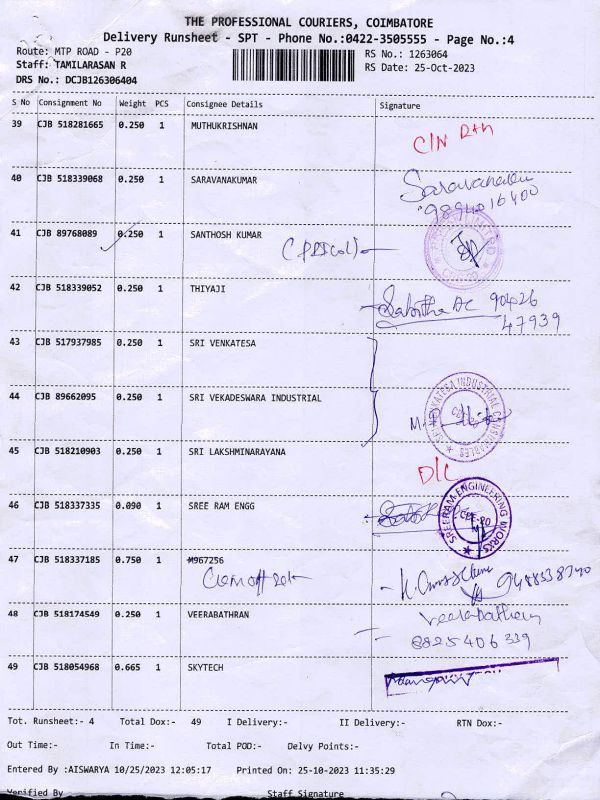 THE PROFESSIONAL COURIERS, COIMBATORE
Delivery Runsheet - SPT - Phone No.:0422-3505555 - Page No.:4
Route: MTP ROAD - P20
RS No.: 1263064
Staff: TAMILARASAN R
RS Date: 25-Oct-2023
DRS No.: DCJB126306404
S No Consignment No Weight PCS Consignee Details Signature
39 CJB 518281665 0.250 1 MUTHUKRISHNAN
C/N Rtn
40 CJB 518339068 0.250 1 SARAVANAKUMAR
41 CJB 89768089 0.250 1 SANTHOSH KUMAR
42 CJB 518339052 0.250 1 THIYAJI
Sabitha AC 90426
47939
43 CJB 517937985 0.250 1 SRI VENKATESA
44 CJB 89662095 0.250 1 SRI VEKADESWARA INDUSTRIAL
45 CJB 518210903 0.250 1 SRI LAKSHMINARAYANA
D/L
46 CJB 518337335 0.090 1 SREE RAM ENGG
SREERAM ENGINEERING WORKS
47 CJB 518337185 0.750 1 M967256
48 CJB 518174549 0.250 1 VEERABATHRAN
8825406339
49 CJB 518054968 0.665 1 SKYTECH
Tot. Runsheet:- 4 Total Dox:- 49 I Delivery:- II Delivery:- RTN Dox:-
Out Time:- In Time:- Total POD:- Delvy Points:-
Entered By :AISWARYA 10/25/2023 12:05:17 Printed On: 25-10-2023 11:35:29
Verified By Staff Signature